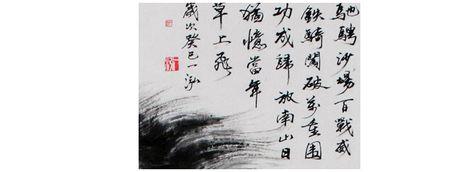 馳騁沙場百戰威
鐵騎闖破萬重围
功成歸放南山日
猶憶當年
草上飛
歲次癸巳一泓